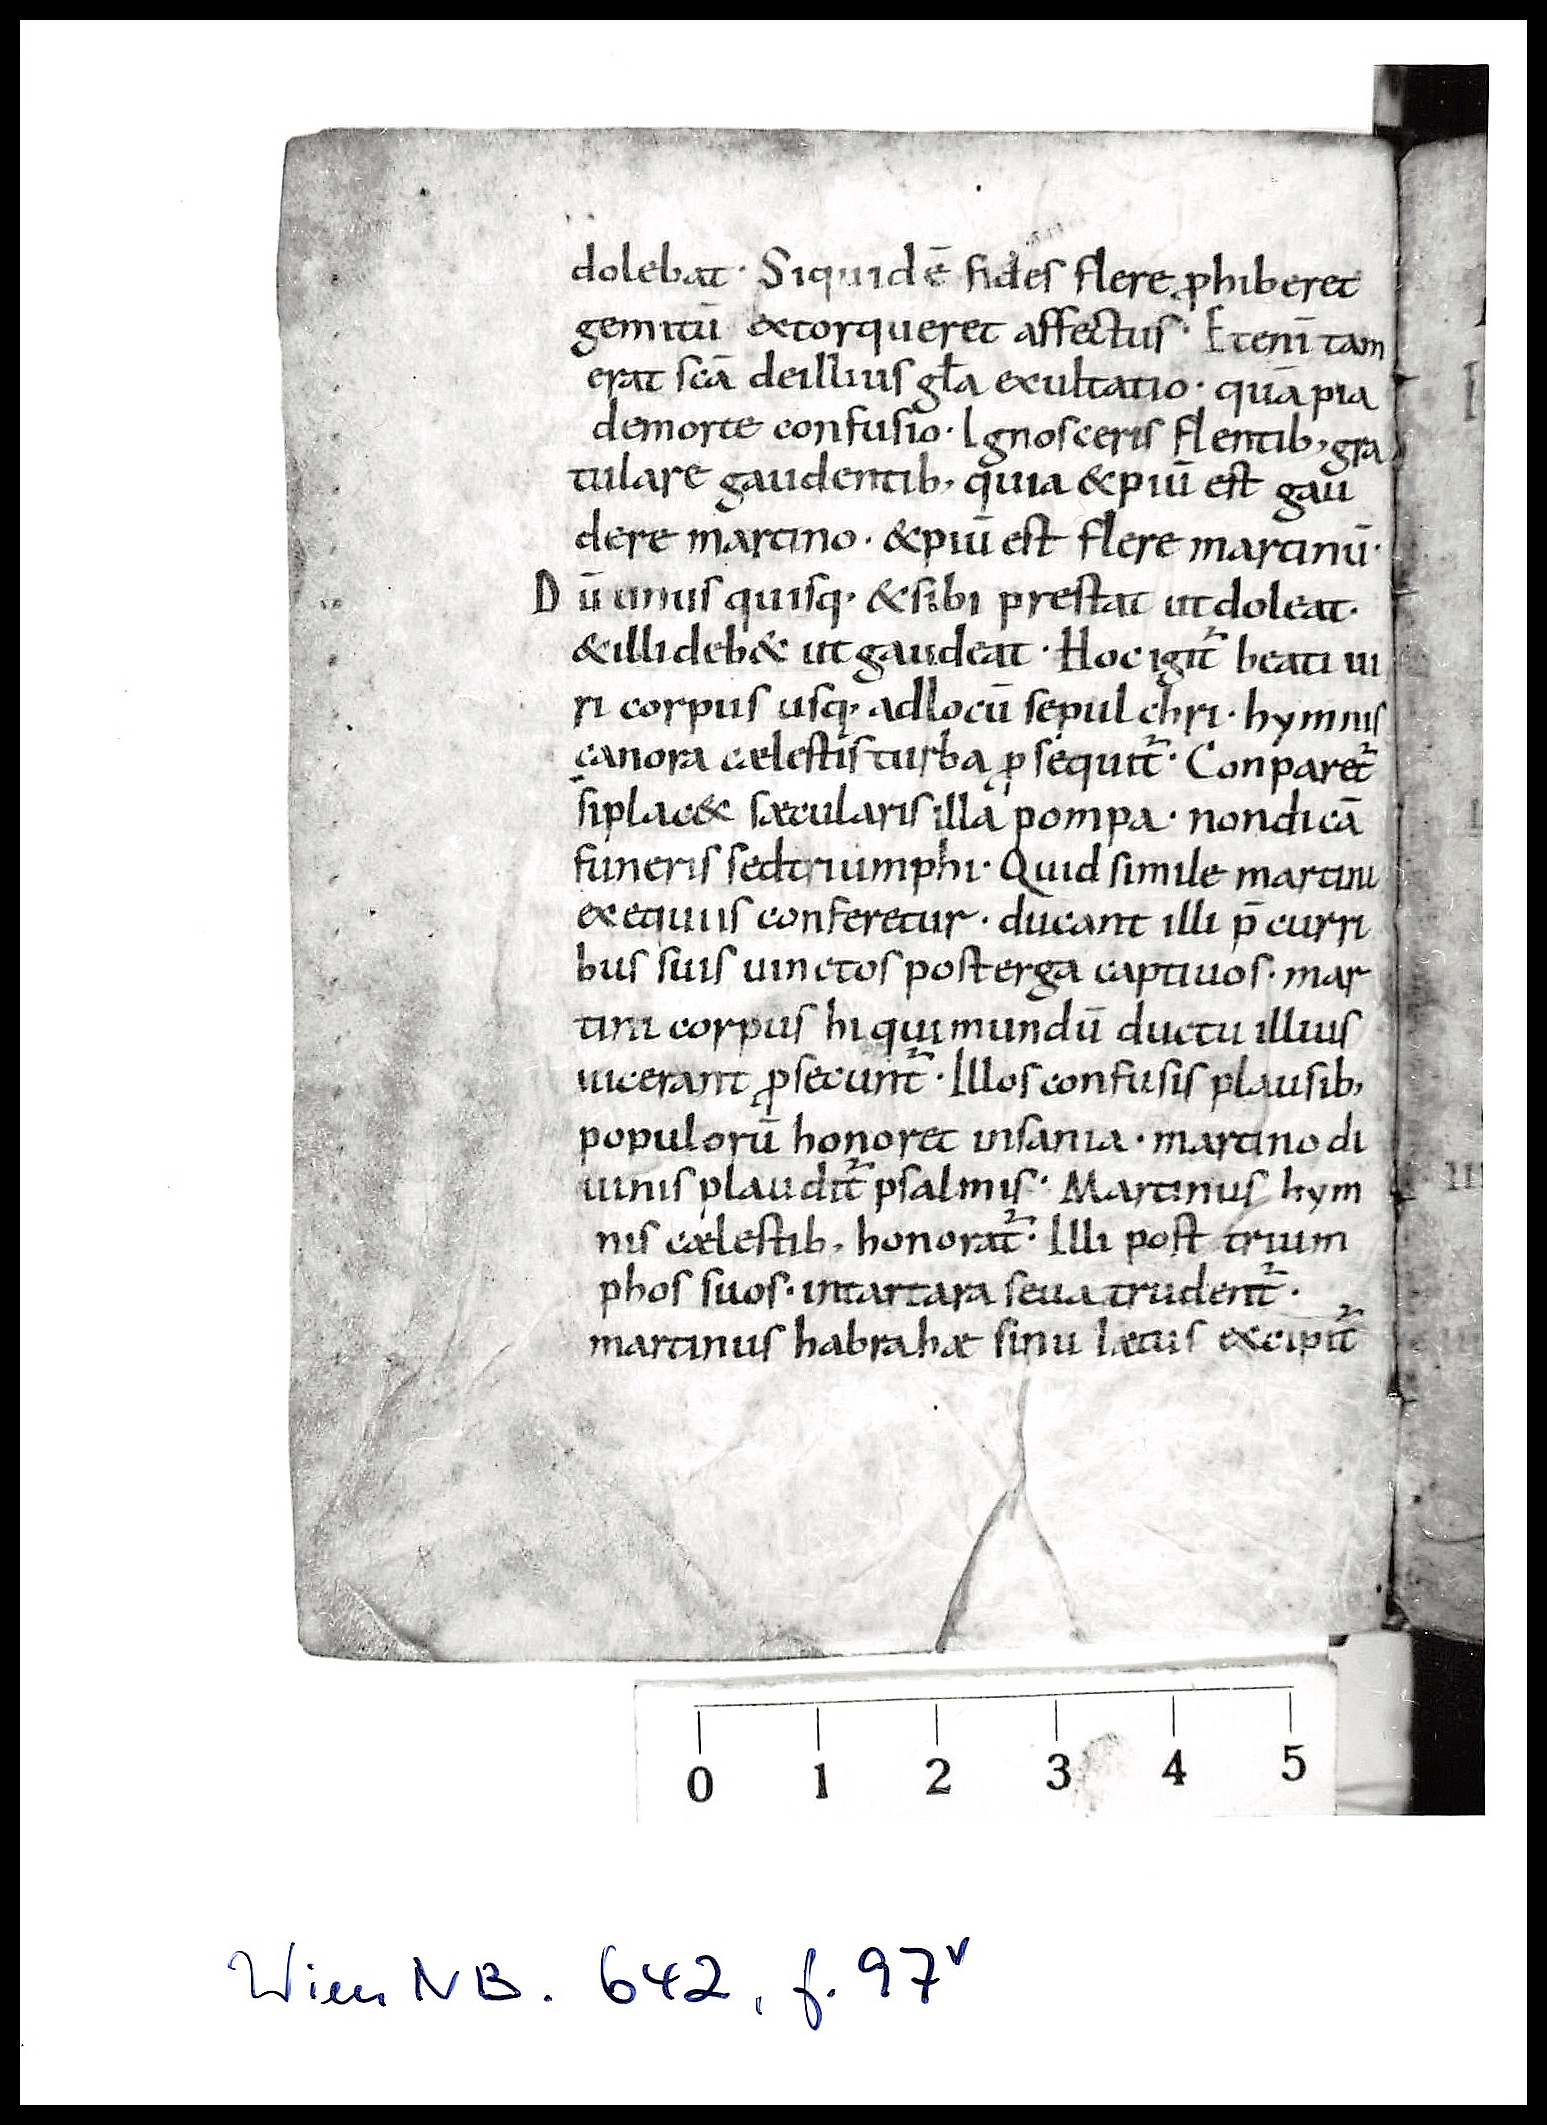 dolebat · Siquidē fides flere ꝓhiberet
gemitū extorqueret affectus · Etenī tam
erat scā deillius gl̄a exultatio · quā pia
demorte confusio · Ignosceris flentib, gra
tulare gaudentib, quia &piū est gau
dere martino · &piū est flere martinū ·
Dū unus quisq, &sibi prestat ut doleat ·
&illi deb& ut gaudeat · Hoc igit᷑ beati ui
ri corpus usq, adlocū sepulchri · hymnis
canora cęlestis turba ꝓsequit᷑ · Conparet᷑
siplac& sæcularis illa pompa · nondicā
funeris sedtriumphi · Quid simile martini
exequiis conferetur · ducant illi p̄ curri
bus suis uinctos posterga captiuos · mar
tini corpus hi qui mundū ductu illius
uicerant ꝓsecunt᷑ · Illos confusis plausib,
populorū honoret insania · martino di
uinis plaudit᷑ psalmis · Martinus hym
nis cælestib, honorat᷑ · Illi post trium
phos suos · intartara seua trudent᷑ ·
martinus habrahæ sinu lætus excipit᷑
0 1 2 3 4 5
Wien NB. 642, f. 97v